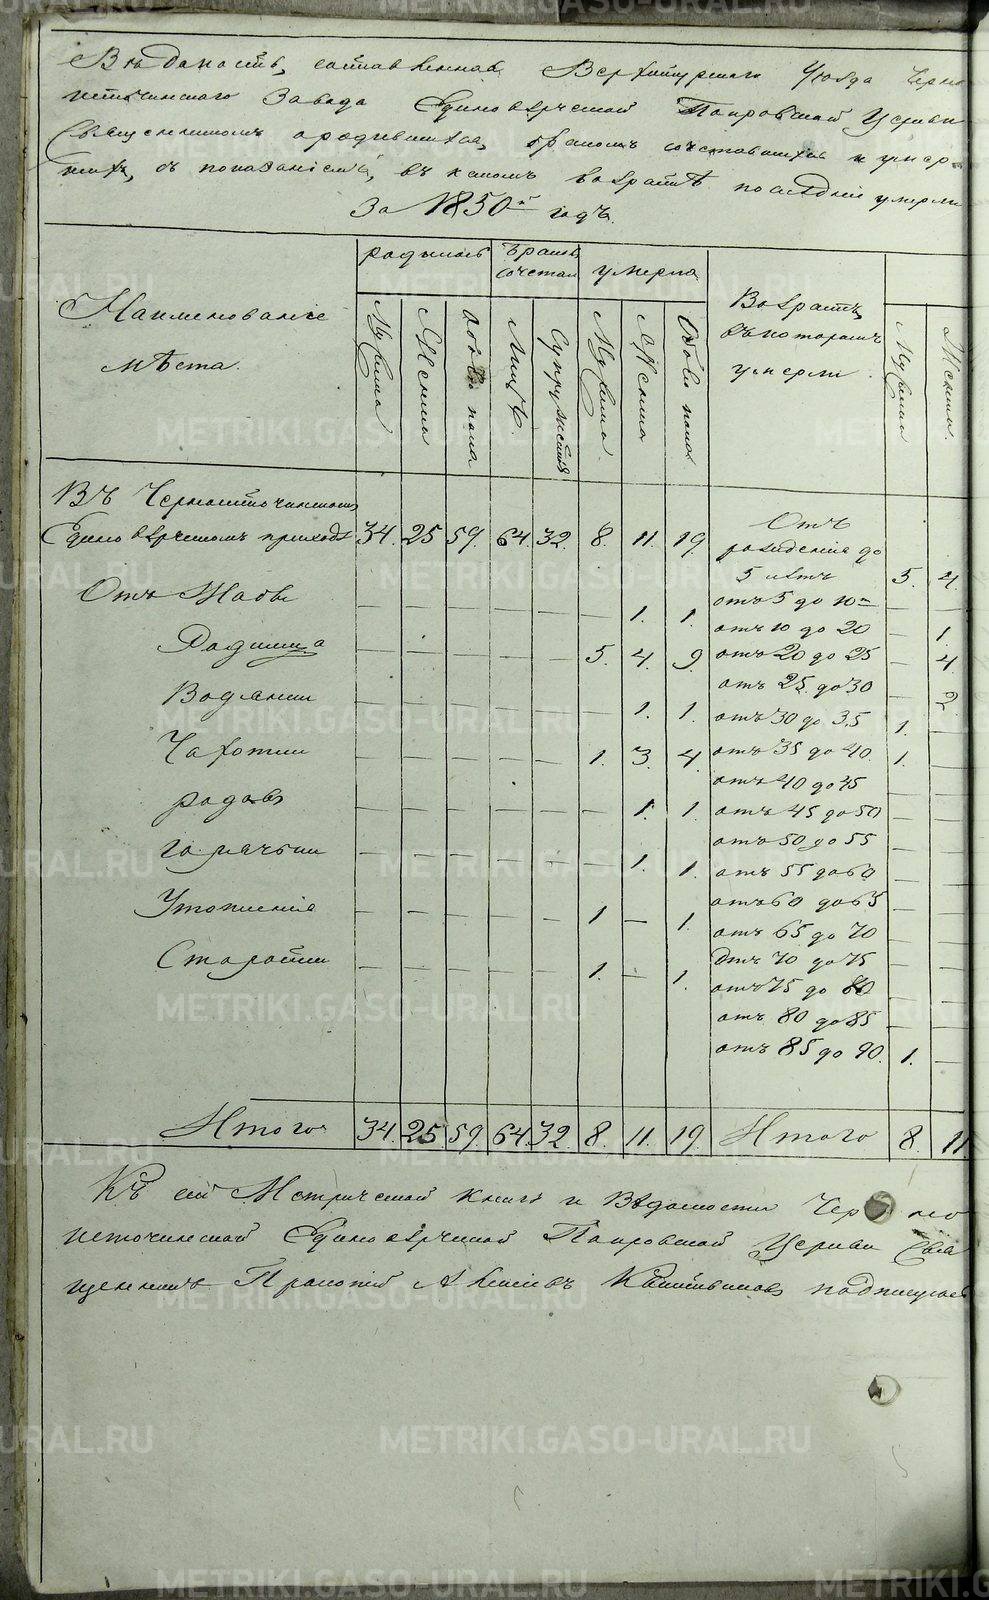 Вѣдомость, составленная Верхотурскаго Уѣзда Черно
источинскаго Завода Единовѣрческой Покровской Церкви
Священникомъ о родившихся, бракомъ сочетавшихся и умер-
шихъ, съ показаніемъ, въ какомъ возрастѣ последніе умерли
За 1850й годъ.
родилось бракомъ сочетал умерло
Наименованіе мѣста.
Мужеска Женска обоего пола Лицъ. Супружествъ Мужеска. Женска Обоего пола
Возрастъ, въ которомъ умерли
Мужеска Женска.
Въ Черноисточинскомъ
Единовѣрческомъ приходѣ 34. 25 59. 64. 32. 8. 11. 19. Отъ рожденія до 5 летъ 5. 4.
— — — — — — 1. 1. отъ 5 до 10 — —
отъ 10 до 20 — 1.
Родимца — — — — — 5. 4. 9 отъ 20 до 25 — 4
отъ 25 до 30 — 2.
— — — — — — 1. 1. отъ 30 до 35 1. —
Чахотки — — — — — 1. 3. 4. отъ 35 до 40. 1. —
отъ 40 до 45 — —
родовъ — — — — — — 1. 1. отъ 45 до 50 — —
отъ 50 до 55 — —
горячки — — — — — — 1. 1. отъ 55 до 60 — —
отъ 60 до 65 — —
Утопленія — — — — — 1 — 1. отъ 65 до 70 — —
отъ 70 до 75 — —
Старости — — — — — 1. — 1. отъ 75 до 80 — —
отъ 80 до 85 — —
отъ 85 до 90. 1. —
Итого 34. 25 59. 64. 32. 8. 11. 19. Итого 8. 11
Къ сей Метрической книге и Ведомости Черно
источинской Единоверческой Покровской Церкви Свя
щенникъ подписуюсь
METRIKI.GASO-URAL.RU